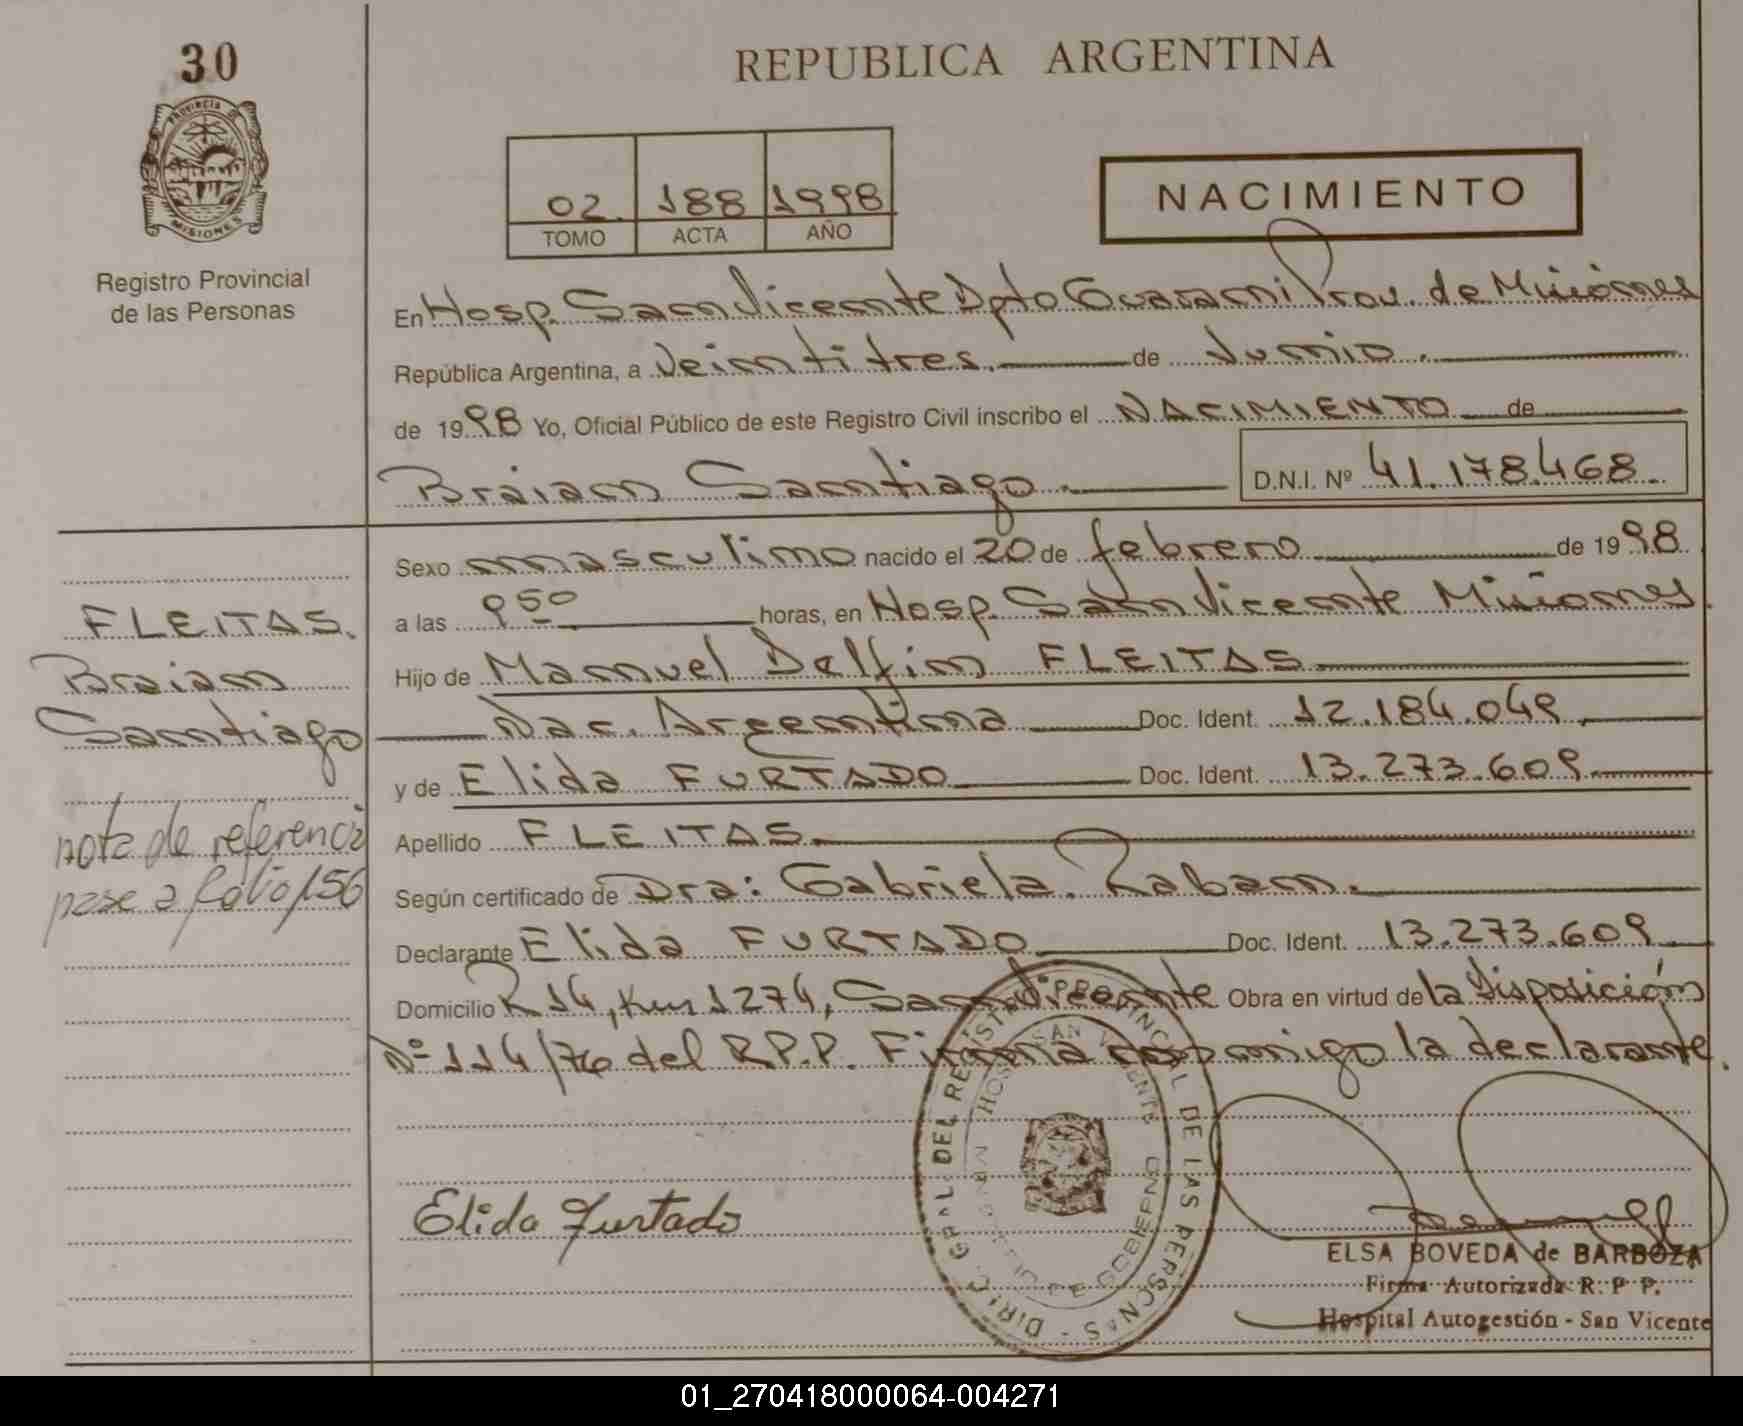 30
REPUBLICA ARGENTINA
PROVINCIA DE
MISIONES
Registro Provincial
de las Personas
02. 188 1998
TOMO ACTA AÑO
NACIMIENTO
En Hosp. San Vicente Dpto Guarani Prov. de Misiones
República Argentina, a Veintitres. de Junio.
de 1998 Yo, Oficial Público de este Registro Civil inscribo el NACIMIENTO de
Braian Santiago. D.N.I. Nº 41.178.468
Sexo masculino nacido el 20 de febrero de 1998
a las 9 50 horas, en Hosp. San Vicente Misiones.
Hijo de Manuel Delfin FLEITAS
Nac. Argentina Doc. Ident. 12.184.049
y de Elida FURTADO Doc. Ident. 13.273.609
Apellido FLEITAS.
Según certificado de Dra: Gabriela Raban.
Declarante Elida FURTADO Doc. Ident. 13.273.609
Domicilio R 14, Km 1274, San Vicente Obra en virtud de la Disposición
Nº 114/76 del R.P.P. Firma conmigo la declarante.
FLEITAS.
Braian
Santiago
nota de referencia
pase a folio 156
Elida Furtado
DIREC. GRAL DEL REGISTRO PROVINCIAL DE LAS PERSONAS
HOSP. SAN VICENTE
GOBIERNO
ELSA BOVEDA de BARBOZA
Firma Autorizada R. P P.
Hospital Autogestión - San Vicente
01_270418000064-004271